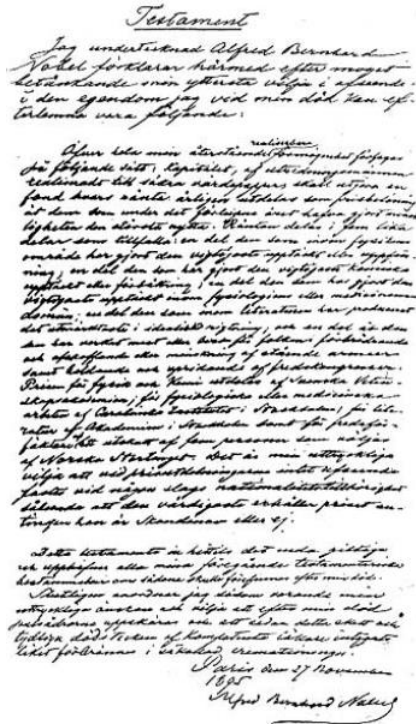 Testament
Jag undertecknad Alfred Bernhard
Nobel förklarar härmed efter moget
betänkande min yttersta vilja i afseende
å den egendom jag vid min död kan ef
terlemna vara följande:
realiserbara
Öfver hela min återstående förmögenhet förfogas
på följande sätt: Kapitalet, af utredningsmännen
realiseradt till säkra värdepapper, skall utgöra en
fond hvars ränta årligen utdelas som prisbelöning
åt dem som under det förlupna året hafva gjort men
skligheten den största nytta. Räntan delas i fem lika
delar som tillfalla: en del den som inom fysikens
område har gjort den vigtigaste upptäckt eller uppfin
ning; en del den som har gjort den vigtigaste kemiska
upptäckt eller förbättring; en del den som har gjort den
vigtigaste upptäckt inom fysiologiens eller medicinens
domän; en del den som inom literaturen har producerat
det utmärktaste i idealisk rigtning; och en del åt den
som har verkat mest eller best för folkens förbrödrande
och afskaffande eller minskning af stående armeer
samt bildande och spridande af fredskongresser.
Prisen för fysik och kemi utdelas af Svenska Veten
skapsakademien; för fysiologiska eller medicinska
arbeten af Carolinska Institutet i Stockholm; för lite
ratur af Akademien i Stockholm samt för fredsför
fäktare af ett utskott af fem personer som väljas
af Norska Stortinget. Det är min uttryckliga
vilja att vid prisutdelningarne intet afseende
fästes vid någon slags nationalitetstillhörighet
sålunda att den värdigaste erhåller priset an
tingen han är Skandinav eller ej.
Detta testamente är hittills det enda giltiga
och upphäfver alla mina föregående testamentariska
bestämmelser om sådane skulle förefinnas efter min död.
Slutligen anordnar jag såsom varande min
uttryckliga önskan och vilja att efter min död
pulsådrorna uppskäras och att sedan detta skett och
tydliga dödstecken af kompetenta läkare intygats
liket förbrännes i såkallad cremationsugn.
Paris den 27 November
1895
Alfred Bernhard Nobel